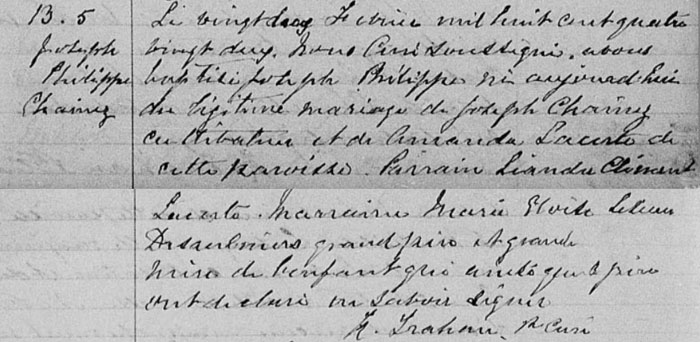 B. 5
Joseph
Philippe
Chainez
Le vingt deux Fevrier mil huit cent quatre
vingt deux, Nous Curé soussigné, avons
baptisé Joseph Philippe né aujourd'hui
du légitime mariage de Joseph Chainez
cultivateur et de Amanda Lacerte de
cette paroisse. Parrain Liandre Clément
Lacerte. Marraine Marie
Desaulniers grand père et grand
mère de l'enfant qui ainsi que le père
ont déclaré ne savoir signer
Ptre Curé